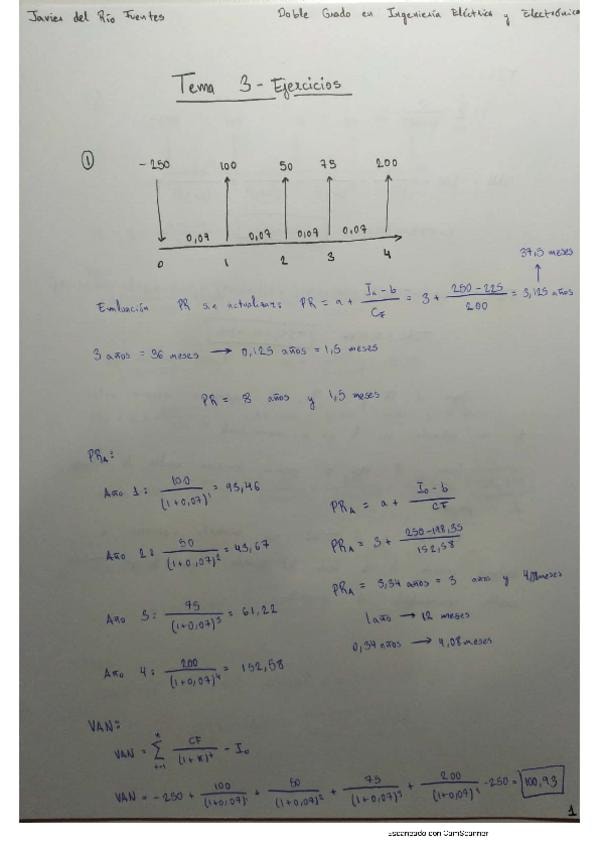 Javier del Río Fuentes Doble Grado en Ingeniería Eléctrica y Electrónica
Tema 3 - Ejercicios
① -250 100 50 75 200
0,07 0,07 0,07 0,07
0 1 2 3 4
37,5 meses
Evaluación PR sin actualizar: PR = a + (I₀ - b)/CF = 3 + (250 - 225)/200 = 3,125 años
3 años = 36 meses → 0,125 años = 1,5 meses
PR = 3 años y 1,5 meses
PRA:
Año 1: 100/(1+0,07)¹ = 93,46
Año 2: 50/(1+0,07)² = 43,67
Año 3: 75/(1+0,07)³ = 61,22
Año 4: 200/(1+0,07)⁴ = 152,58
PRA = a + (I₀ - b)/CF
PRA = 3 + (250 - 198,35)/152,58
PRA = 3,34 años = 3 años y 4,08 meses
1 año → 12 meses
0,34 años → 4,08 meses
VAN:
VAN = Σ CF/(1+K)ᵗ - I₀
n
t=1
VAN = -250 + 100/(1+0,07)¹ + 50/(1+0,07)² + 75/(1+0,07)³ + 200/(1+0,07)⁴ - 250 = 100,93
1
Escaneado con CamScanner